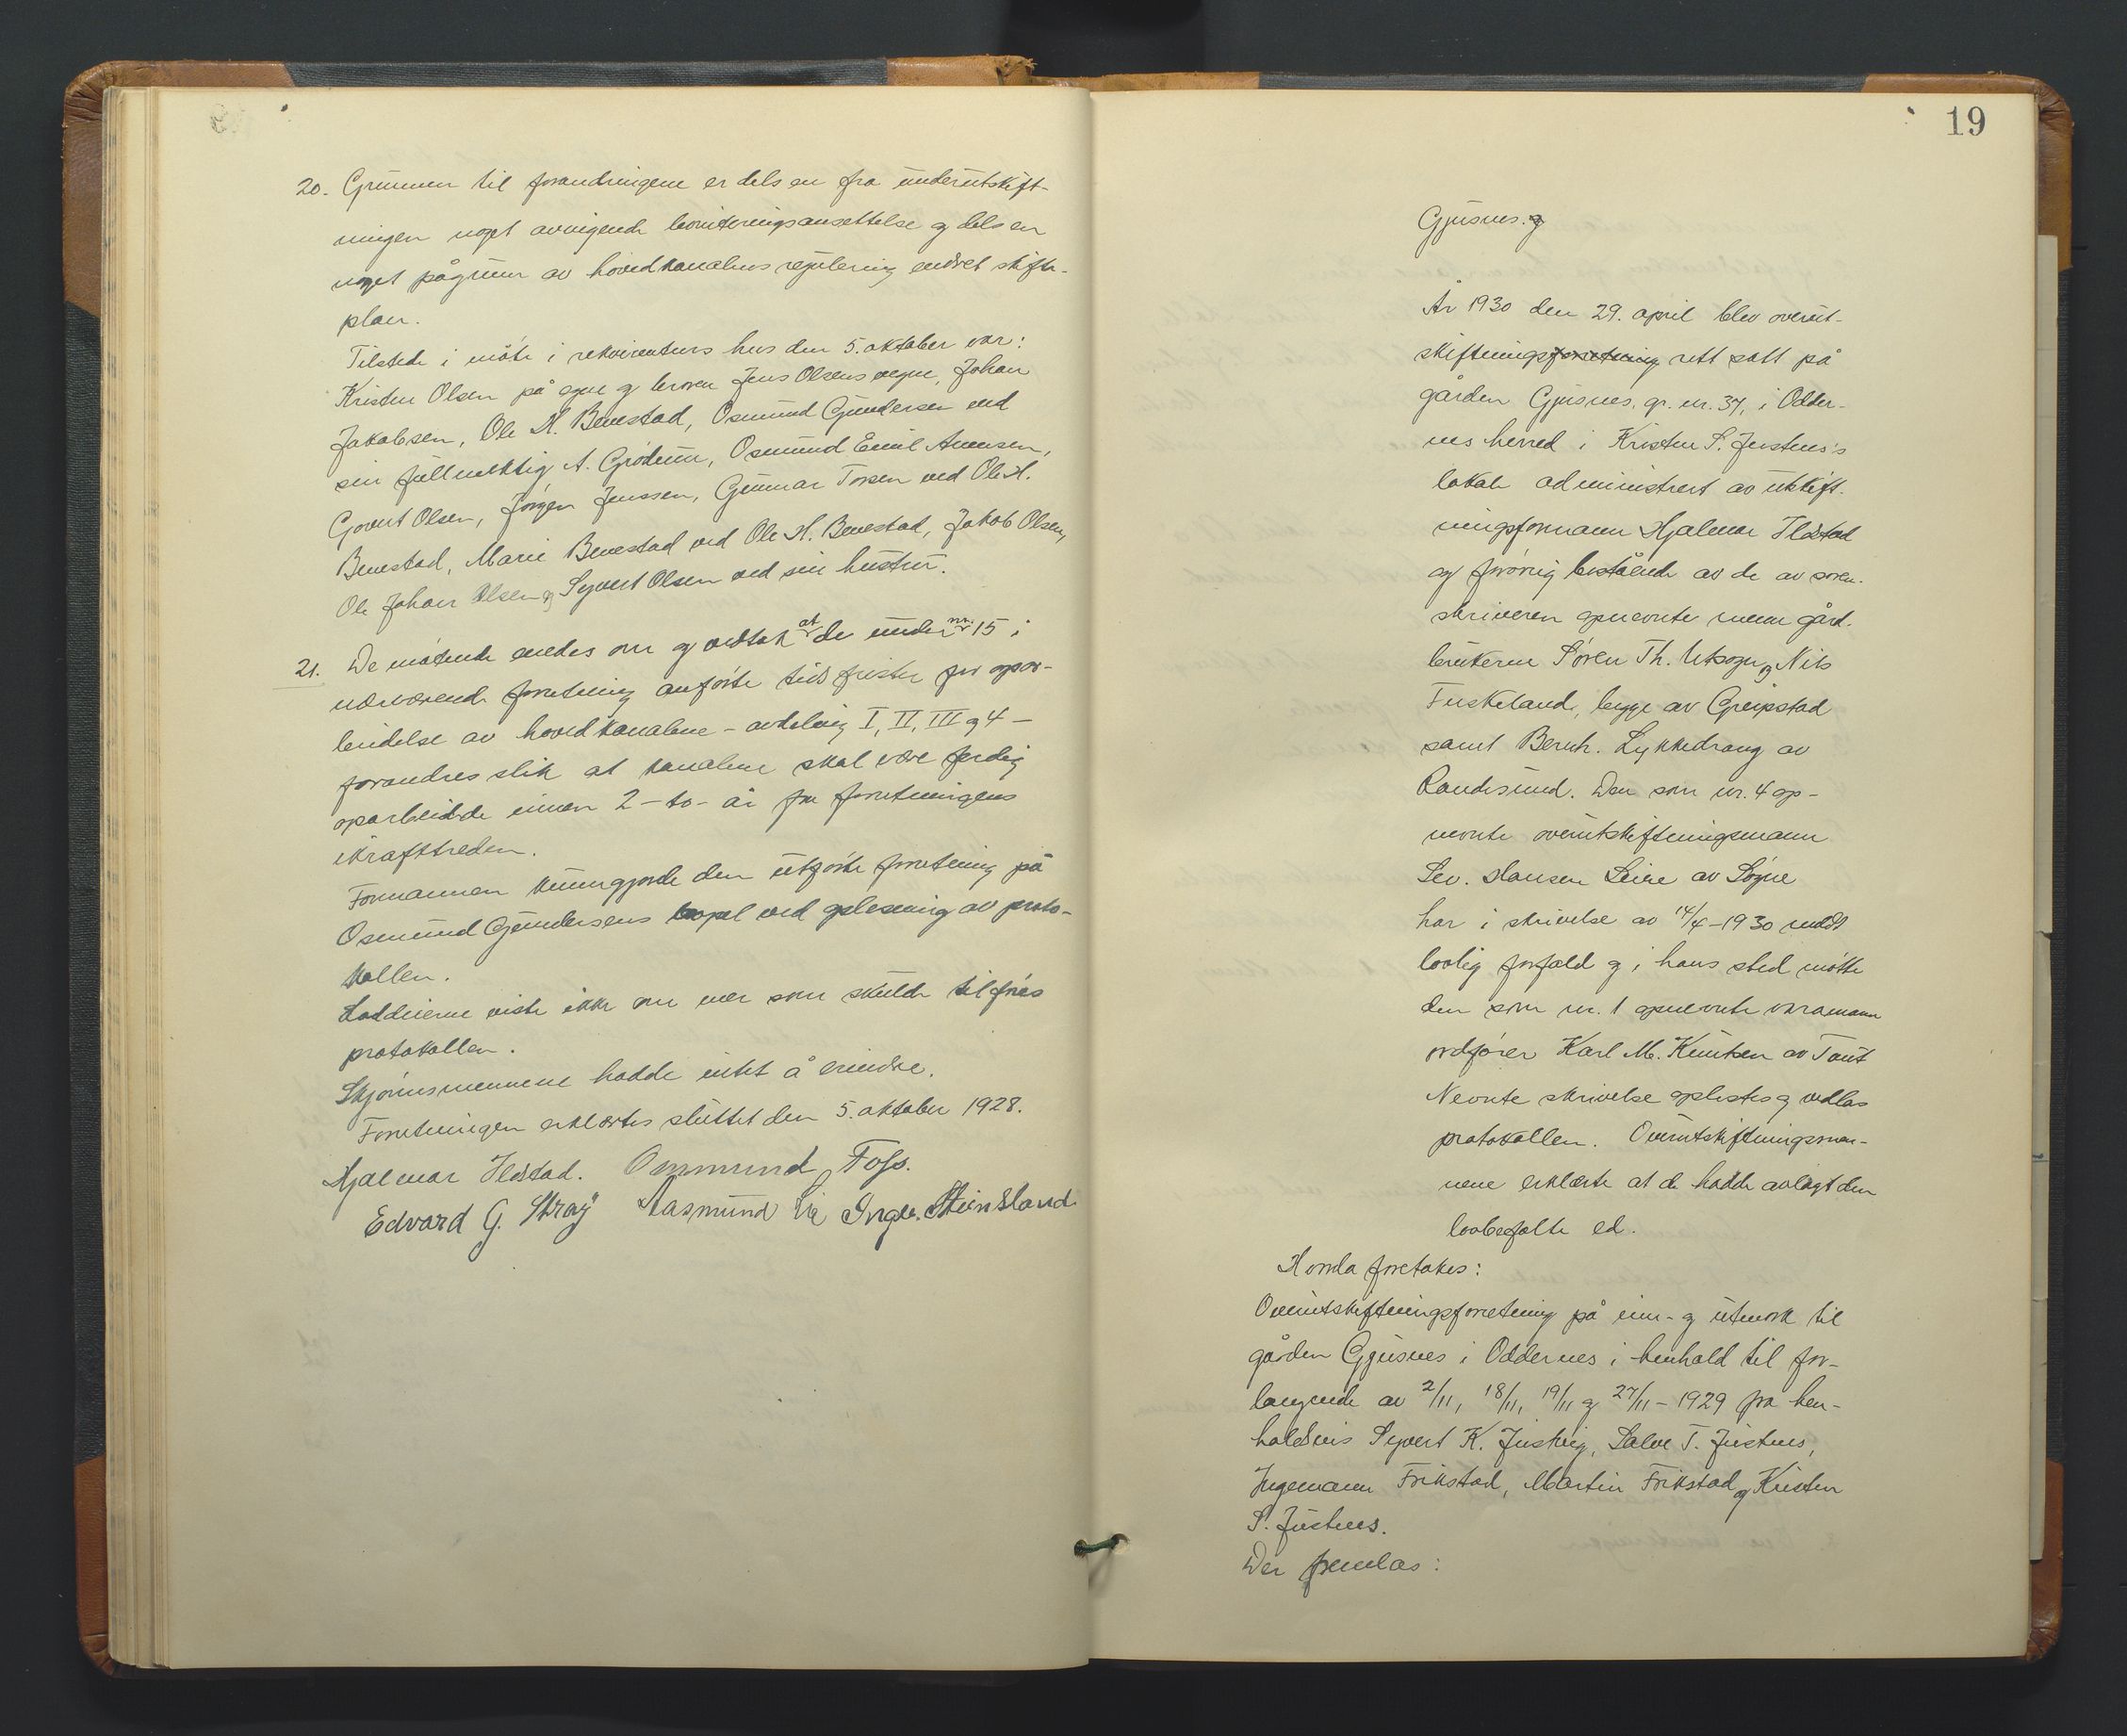 20. Grunnen til forandringene er dels en fra underutskift-
ningen noget avvigende boniteringsansettelse og dels en
noget pågrunn av hovedkanalens regulering endret skifte-
plan.
Tilstede i møte i rekvirentens hus den 5. oktober var:
Kristen Olsen på egne og broren Jens Olsens vegne, Johan
Jakobsen, Ole H. Benestad, Osmund Gundersen ved
sin fullmektig A. Grødum, Osmund Emil Aanensen,
Govert Olsen, Jørgen Jenssen, Gunnar Torsen ved Ole H.
Benestad, Marie Benestad ved Ole H. Benestad, Jakob Olsen,
Ole Johan Olsen og Syvert Olsen ved sin hustru.
21. De møtende enedes om og vedtok at de under nr. 15 i
nærværende forretning anførte tidsfrister for opar-
beidelse av hovedkanalene - avdeling I, II, III og 4 -
forandres slik at kanalene skal være ferdig
oparbeidde innen 2 - to - år fra forretningens
ikrafttreden.
Formannen kunngjorde den utførte forretning på
Osmund Gundersens bopel ved oplesning av proto-
kollen.
Loddeierne viste ikke om mer som skulde tilføies
protokollen.
Skjønnsmennene hadde intet å erindre.
Forretningen erklærtes sluttet den 5. oktober 1928.
Hjalmar Ildstad. Ommund Foss.
Edvard G. Stray Aasmund Lie Ingv. Steinsland.
19
Gjusnes. g
År 1930 den 29. april blev overut-
skiftningsforretning rett satt på
gården Gjusnes, gr. nr. 37, i Odder-
nes herred i Kristen S. Justnes's
lokale administrert av utskift-
ningsformann Hjalmar Ildstad
og forøvrig bestående av de av soren-
skriveren opnevnte menn gård-
brukerne Søren Th. Utsogn og Nils
Fuskeland, begge av Greipstad
samt Bernh. Lykkedrang av
Randesund. Den som nr. 4 op-
nevnte overutskiftningsmann
Sev. Hansen Leire av Søgne
har i skrivelse av 14/4-1930 meldt
lovlig forfald og i hans sted møtte
den som nr. 1 opnevnte varamann
ordfører Karl M. Knutsen av Tveit
Nevnte skrivelse oplestes og vedlas
protokollen. Overutskiftningsmen-
nene erklærte at de hadde avlagt den
lovbefalte ed.
Hvorda foretokes:
Overutskiftningsforretning på inn- og utmark til
gården Gjusnes i Oddernes i henhold til for-
langende av 2/11, 18/11, 19/11 og 27/11-1929 fra hen-
holdsvis Syvert K. Justvig, Salve T. Justnes,
Ingemann Frikstad, Martin Frikstad og Kristen
S. Justnes.
Der fremlas: